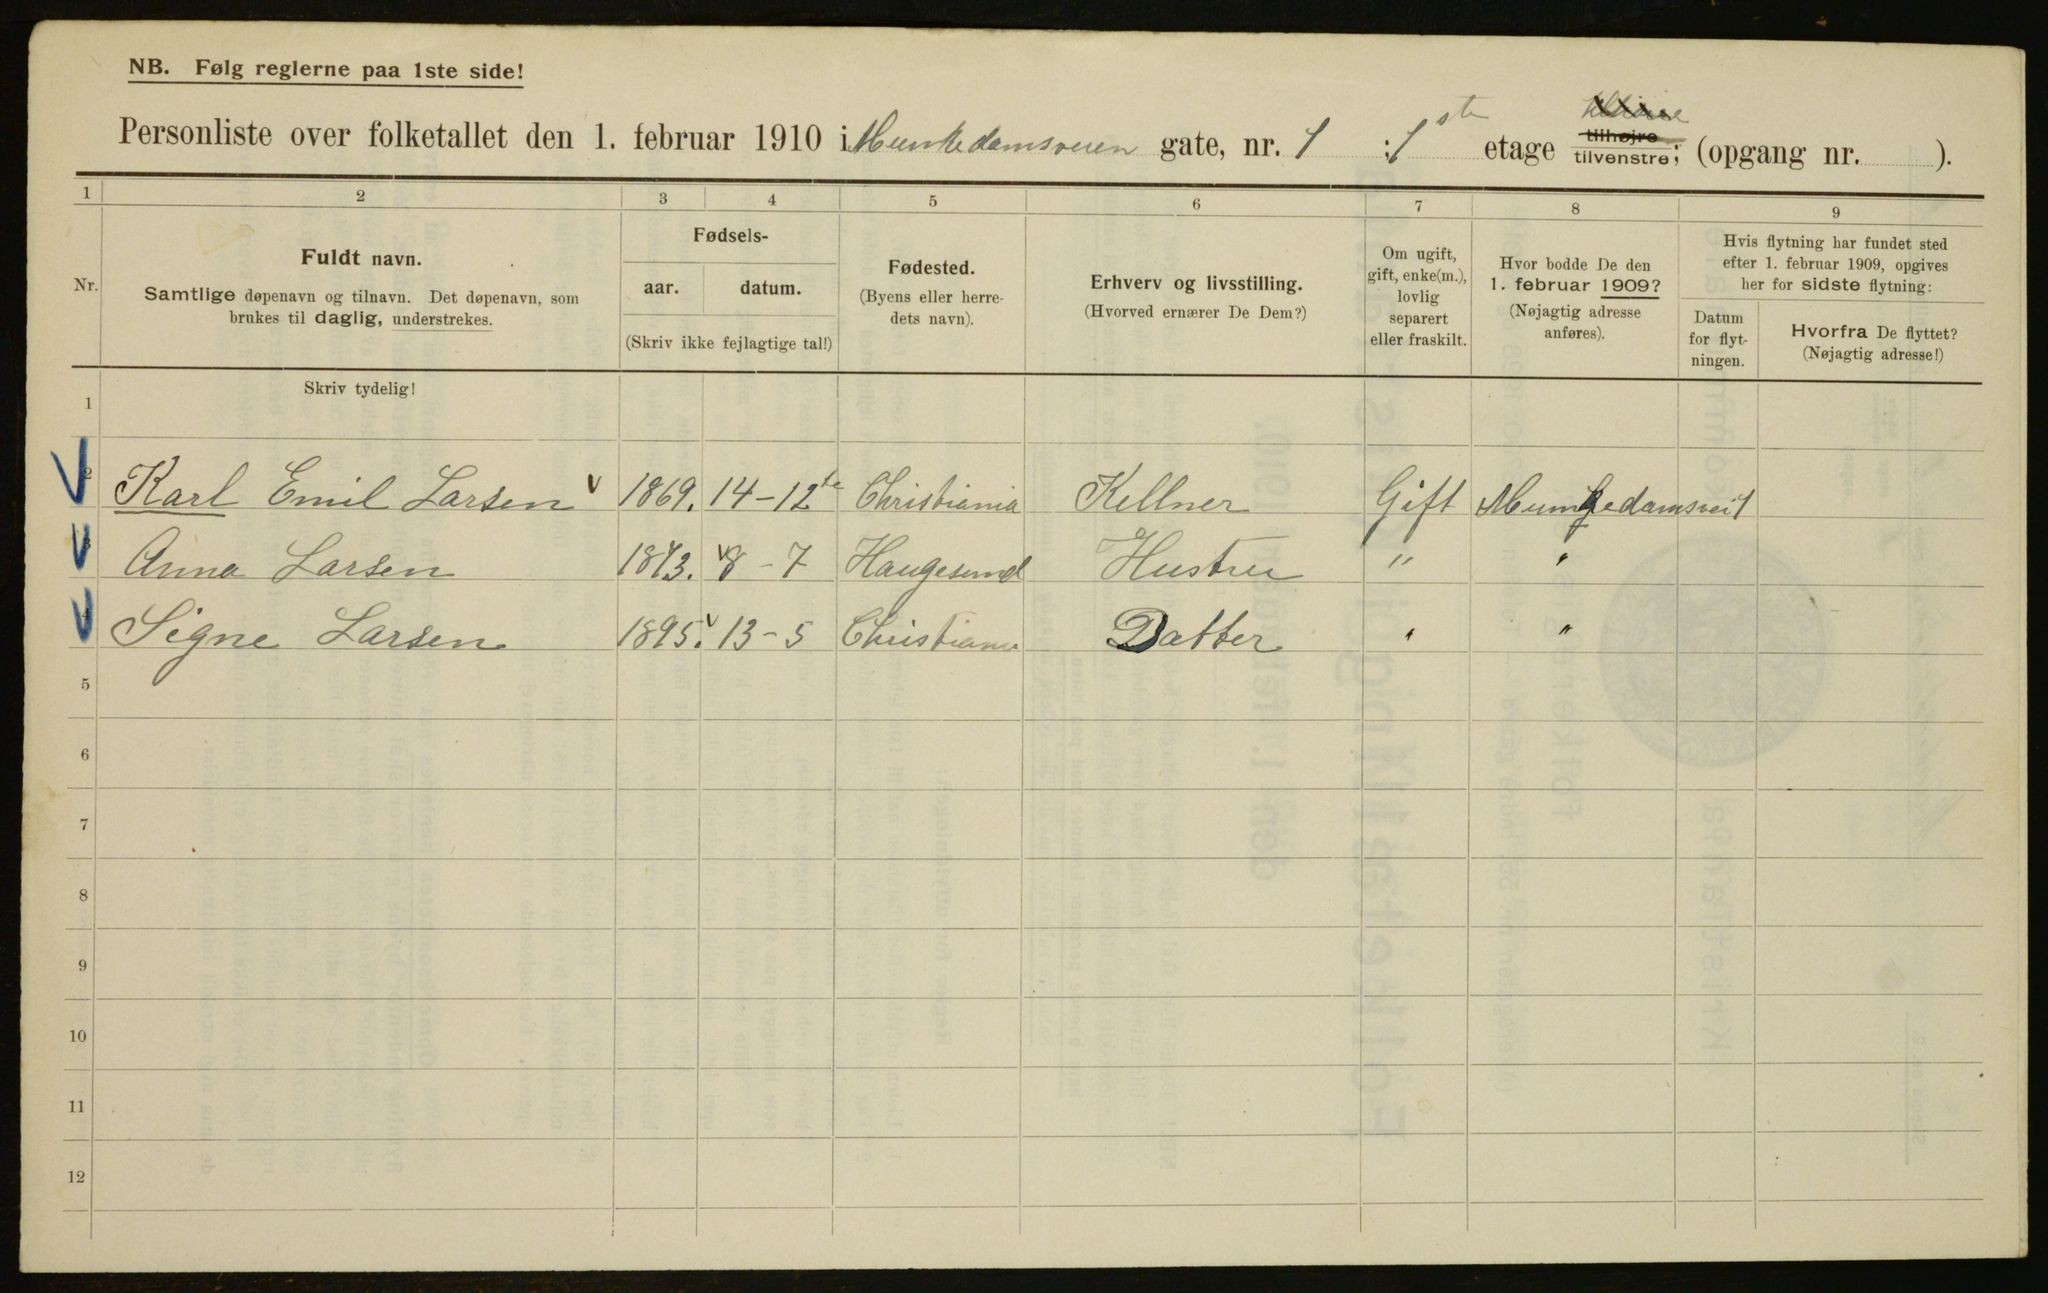 NB. Følg reglerne paa 1ste side!
Personliste over folketallet den 1. februar 1910 i Munkedamsveien gate, nr. 1 : 1ste etage tilhøjre tilvenstre; (opgang nr. ).
1 2 3 4 5 6 7 8 9
Nr.
Fuldt navn.
Samtlige døpenavn og tilnavn. Det døpenavn, som
brukes til daglig, understrekes.
Fødsels-
aar. datum.
(Skriv ikke fejlagtige tal!)
Fødested.
(Byens eller herre-
dets navn).
Erhverv og livsstilling.
(Hvorved ernærer De Dem?)
Om ugift,
gift, enke(m.),
lovlig
separert
eller fraskilt.
Hvor bodde De den
1. februar 1909?
(Nøjagtig adresse
anføres).
Hvis flytning har fundet sted
efter 1. februar 1909, opgives
her for sidste flytning:
Datum
for flyt-
ningen.
Hvorfra De flyttet?
(Nøjagtig adresse!)
Skriv tydelig!
1
2 Karl Emil Larsen 1869. 14-12te Christiania Kellner Gift Munkedamsvei 1
3 Anna Larsen 1873. 8-7 Haugesund Hustru " "
4 Signe Larsen 1895. 13-5 Christiania Datter " "
5
6
7
8
9
10
11
12